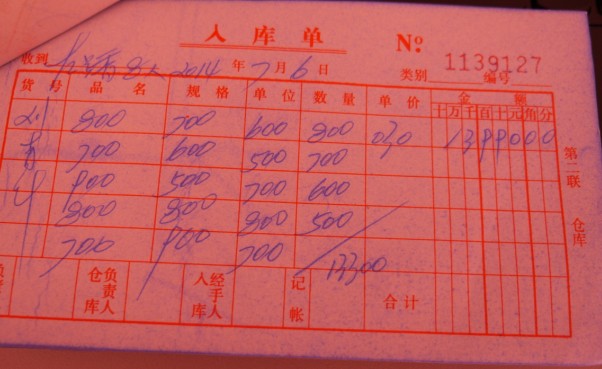 入库单 №
1139127
收到 2014 年 7 月 6 日 类别 编号
货号 品名 规格 单位 数量 单价 金额
十万千百十元角分
800 700 600 800 030 399000
700 600 500 700
900 500 700 600
800 800 800 500
700 900 700 13300
仓库负责人 入库经手人 记帐 合计
第二联 仓库